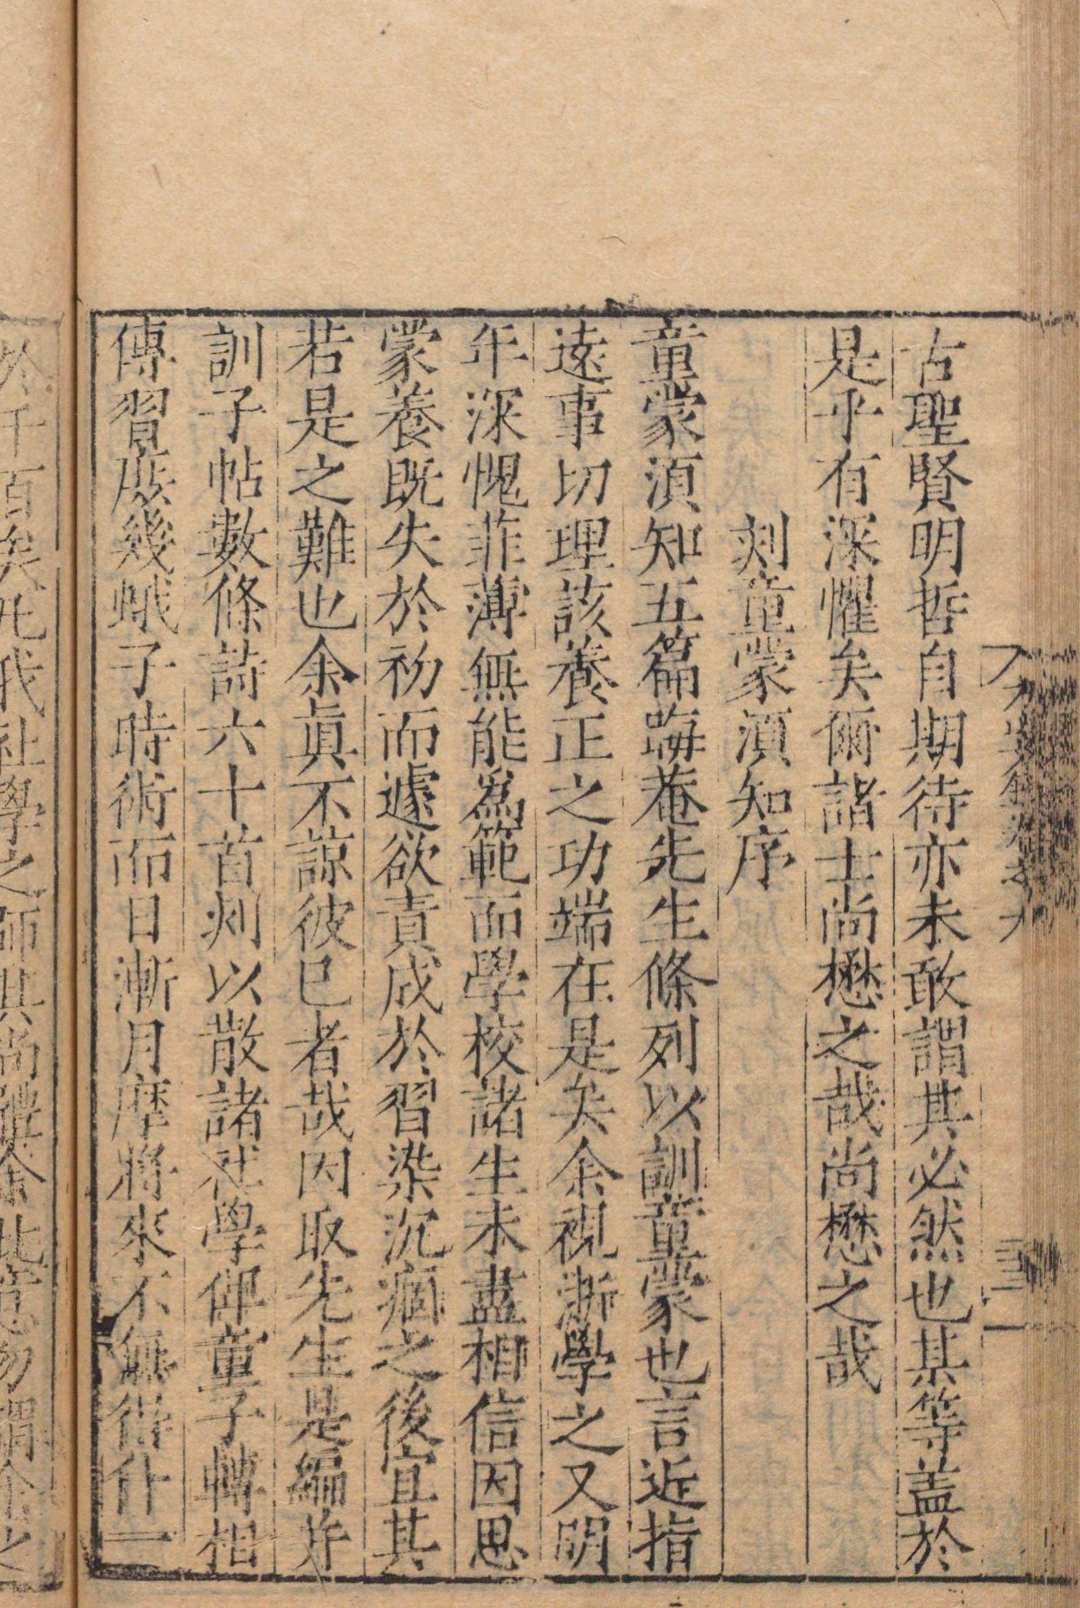 古聖賢明哲自期待亦未敢謂其必然也某等盖於
是乎有深懼矣爾諸士尚懋之哉尚懋之哉
刻童蒙湏知序
童蒙湏知五篇晦菴先生條列以訓童蒙也言近指
遠事切理該養正之功端在是矣余視浙學之又明
年深愧菲薄無能爲範而學校諸生未盡相信因思
蒙養既失於初而遽欲責成於習染沉痼之後宜其
若是之難也余眞不諒彼已者哉因取先生是編并
訓子帖數條詩六十首刻以散諸社學俾童子轉相
傳習庶幾蛾子時術而日漸月摩將來不無得什一
於千百矣凡我社學之師其尚體余此意勿謂余之